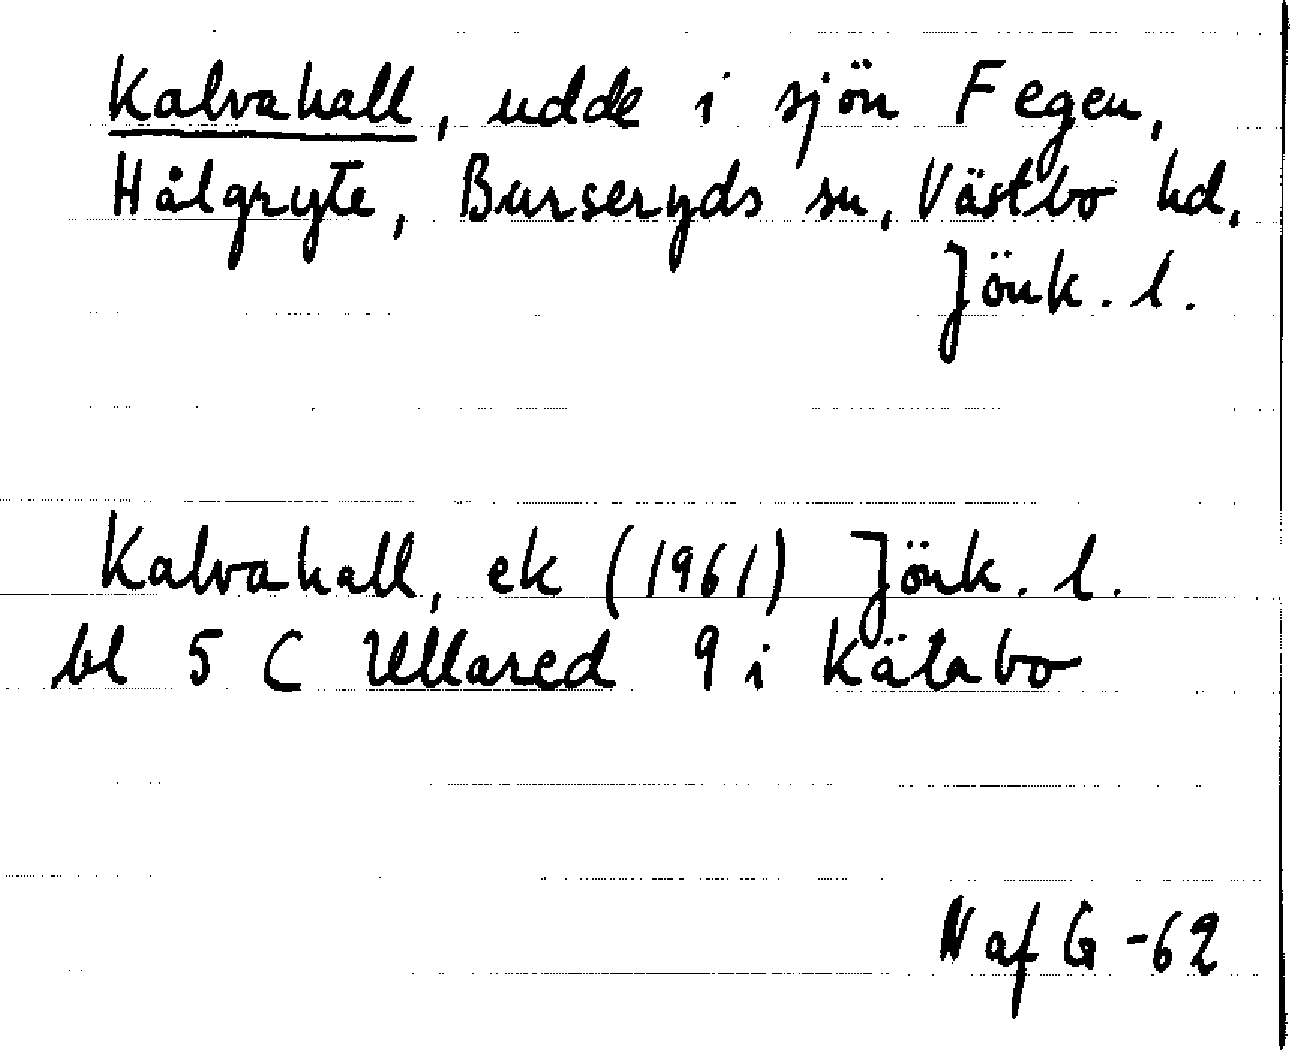 Kalvahall, udde i sjön Fegen,
Hålgryte, Burseryds sn, Västbo hd,
Jönk. l.
Kalvahall, ek (1961) Jönk. l.
bl 5 C Ullared 9 i Kälabo
N af G -62